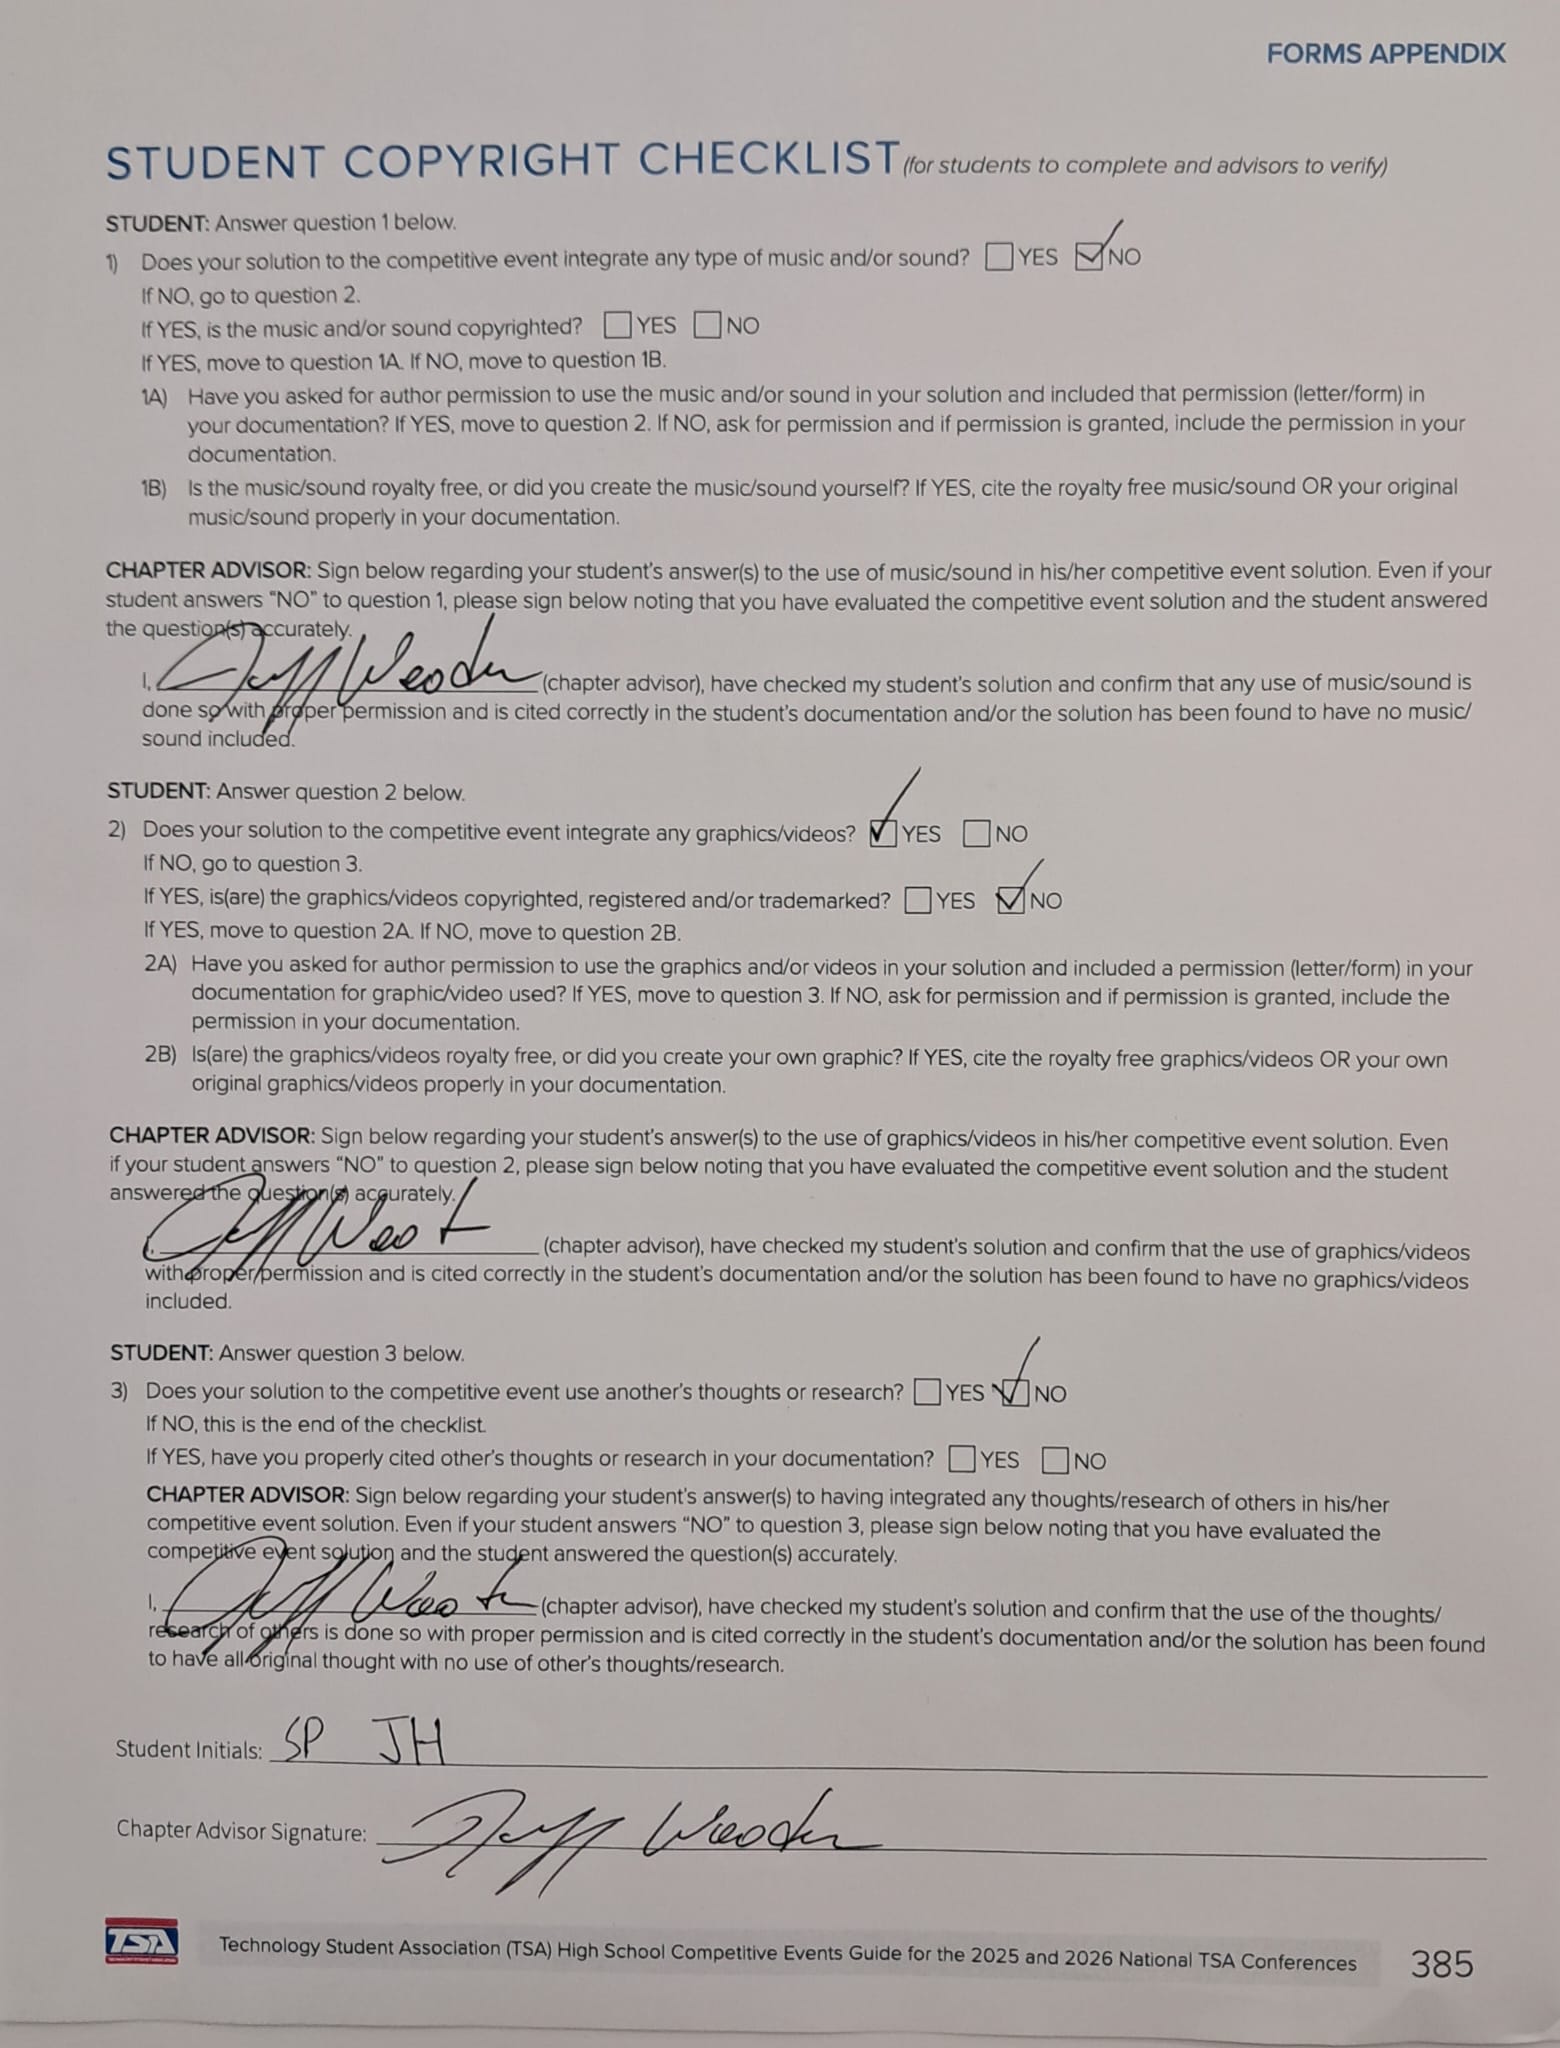 FORMS APPENDIX
STUDENT COPYRIGHT CHECKLIST (for students to complete and advisors to verify)
STUDENT: Answer question 1 below.
1) Does your solution to the competitive event integrate any type of music and/or sound? YES NO
If NO, go to question 2.
If YES, is the music and/or sound copyrighted? YES NO
If YES, move to question 1A. If NO, move to question 1B.
1A) Have you asked for author permission to use the music and/or sound in your solution and included that permission (letter/form) in
your documentation? If YES, move to question 2. If NO, ask for permission and if permission is granted, include the permission in your
documentation.
1B) Is the music/sound royalty free, or did you create the music/sound yourself? If YES, cite the royalty free music/sound OR your original
music/sound properly in your documentation.
CHAPTER ADVISOR: Sign below regarding your student's answer(s) to the use of music/sound in his/her competitive event solution. Even if your
student answers "NO" to question 1, please sign below noting that you have evaluated the competitive event solution and the student answered
the question(s) accurately.
I, (chapter advisor), have checked my student's solution and confirm that any use of music/sound is
done so with proper permission and is cited correctly in the student's documentation and/or the solution has been found to have no music/
sound included.
STUDENT: Answer question 2 below.
2) Does your solution to the competitive event integrate any graphics/videos? YES NO
If NO, go to question 3.
If YES, is(are) the graphics/videos copyrighted, registered and/or trademarked? YES NO
If YES, move to question 2A. If NO, move to question 2B.
2A) Have you asked for author permission to use the graphics and/or videos in your solution and included a permission (letter/form) in your
documentation for graphic/video used? If YES, move to question 3. If NO, ask for permission and if permission is granted, include the
permission in your documentation.
2B) Is(are) the graphics/videos royalty free, or did you create your own graphic? If YES, cite the royalty free graphics/videos OR your own
original graphics/videos properly in your documentation.
CHAPTER ADVISOR: Sign below regarding your student's answer(s) to the use of graphics/videos in his/her competitive event solution. Even
if your student answers "NO" to question 2, please sign below noting that you have evaluated the competitive event solution and the student
answered the question(s) accurately.
(chapter advisor), have checked my student's solution and confirm that the use of graphics/videos
with proper permission and is cited correctly in the student's documentation and/or the solution has been found to have no graphics/videos
included.
STUDENT: Answer question 3 below.
3) Does your solution to the competitive event use another's thoughts or research? YES NO
If NO, this is the end of the checklist.
If YES, have you properly cited other's thoughts or research in your documentation? YES NO
CHAPTER ADVISOR: Sign below regarding your student's answer(s) to having integrated any thoughts/research of others in his/her
competitive event solution. Even if your student answers "NO" to question 3, please sign below noting that you have evaluated the
competitive event solution and the student answered the question(s) accurately.
I, (chapter advisor), have checked my student's solution and confirm that the use of the thoughts/
research of others is done so with proper permission and is cited correctly in the student's documentation and/or the solution has been found
to have all original thought with no use of other's thoughts/research.
Student Initials: SP JH
Chapter Advisor Signature: Jeff
TSA
Technology Student Association (TSA) High School Competitive Events Guide for the 2025 and 2026 National TSA Conferences 385